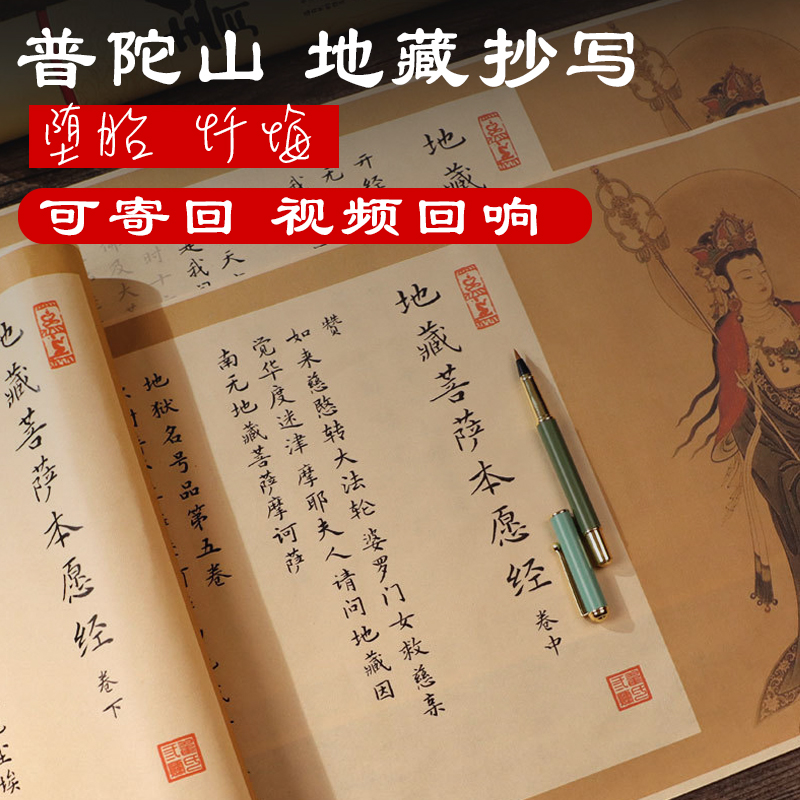 普陀山 地藏抄写
堕胎 忏悔
可寄回 视频回响
地藏
开经
地藏菩萨本愿经 卷中
赞
如来慈愍转大法轮婆罗门女救慈亲
觉华度迷津摩耶夫人请问地藏因
南无地藏菩萨摩诃萨
地狱名号品第五卷
地藏菩萨本愿经 卷下